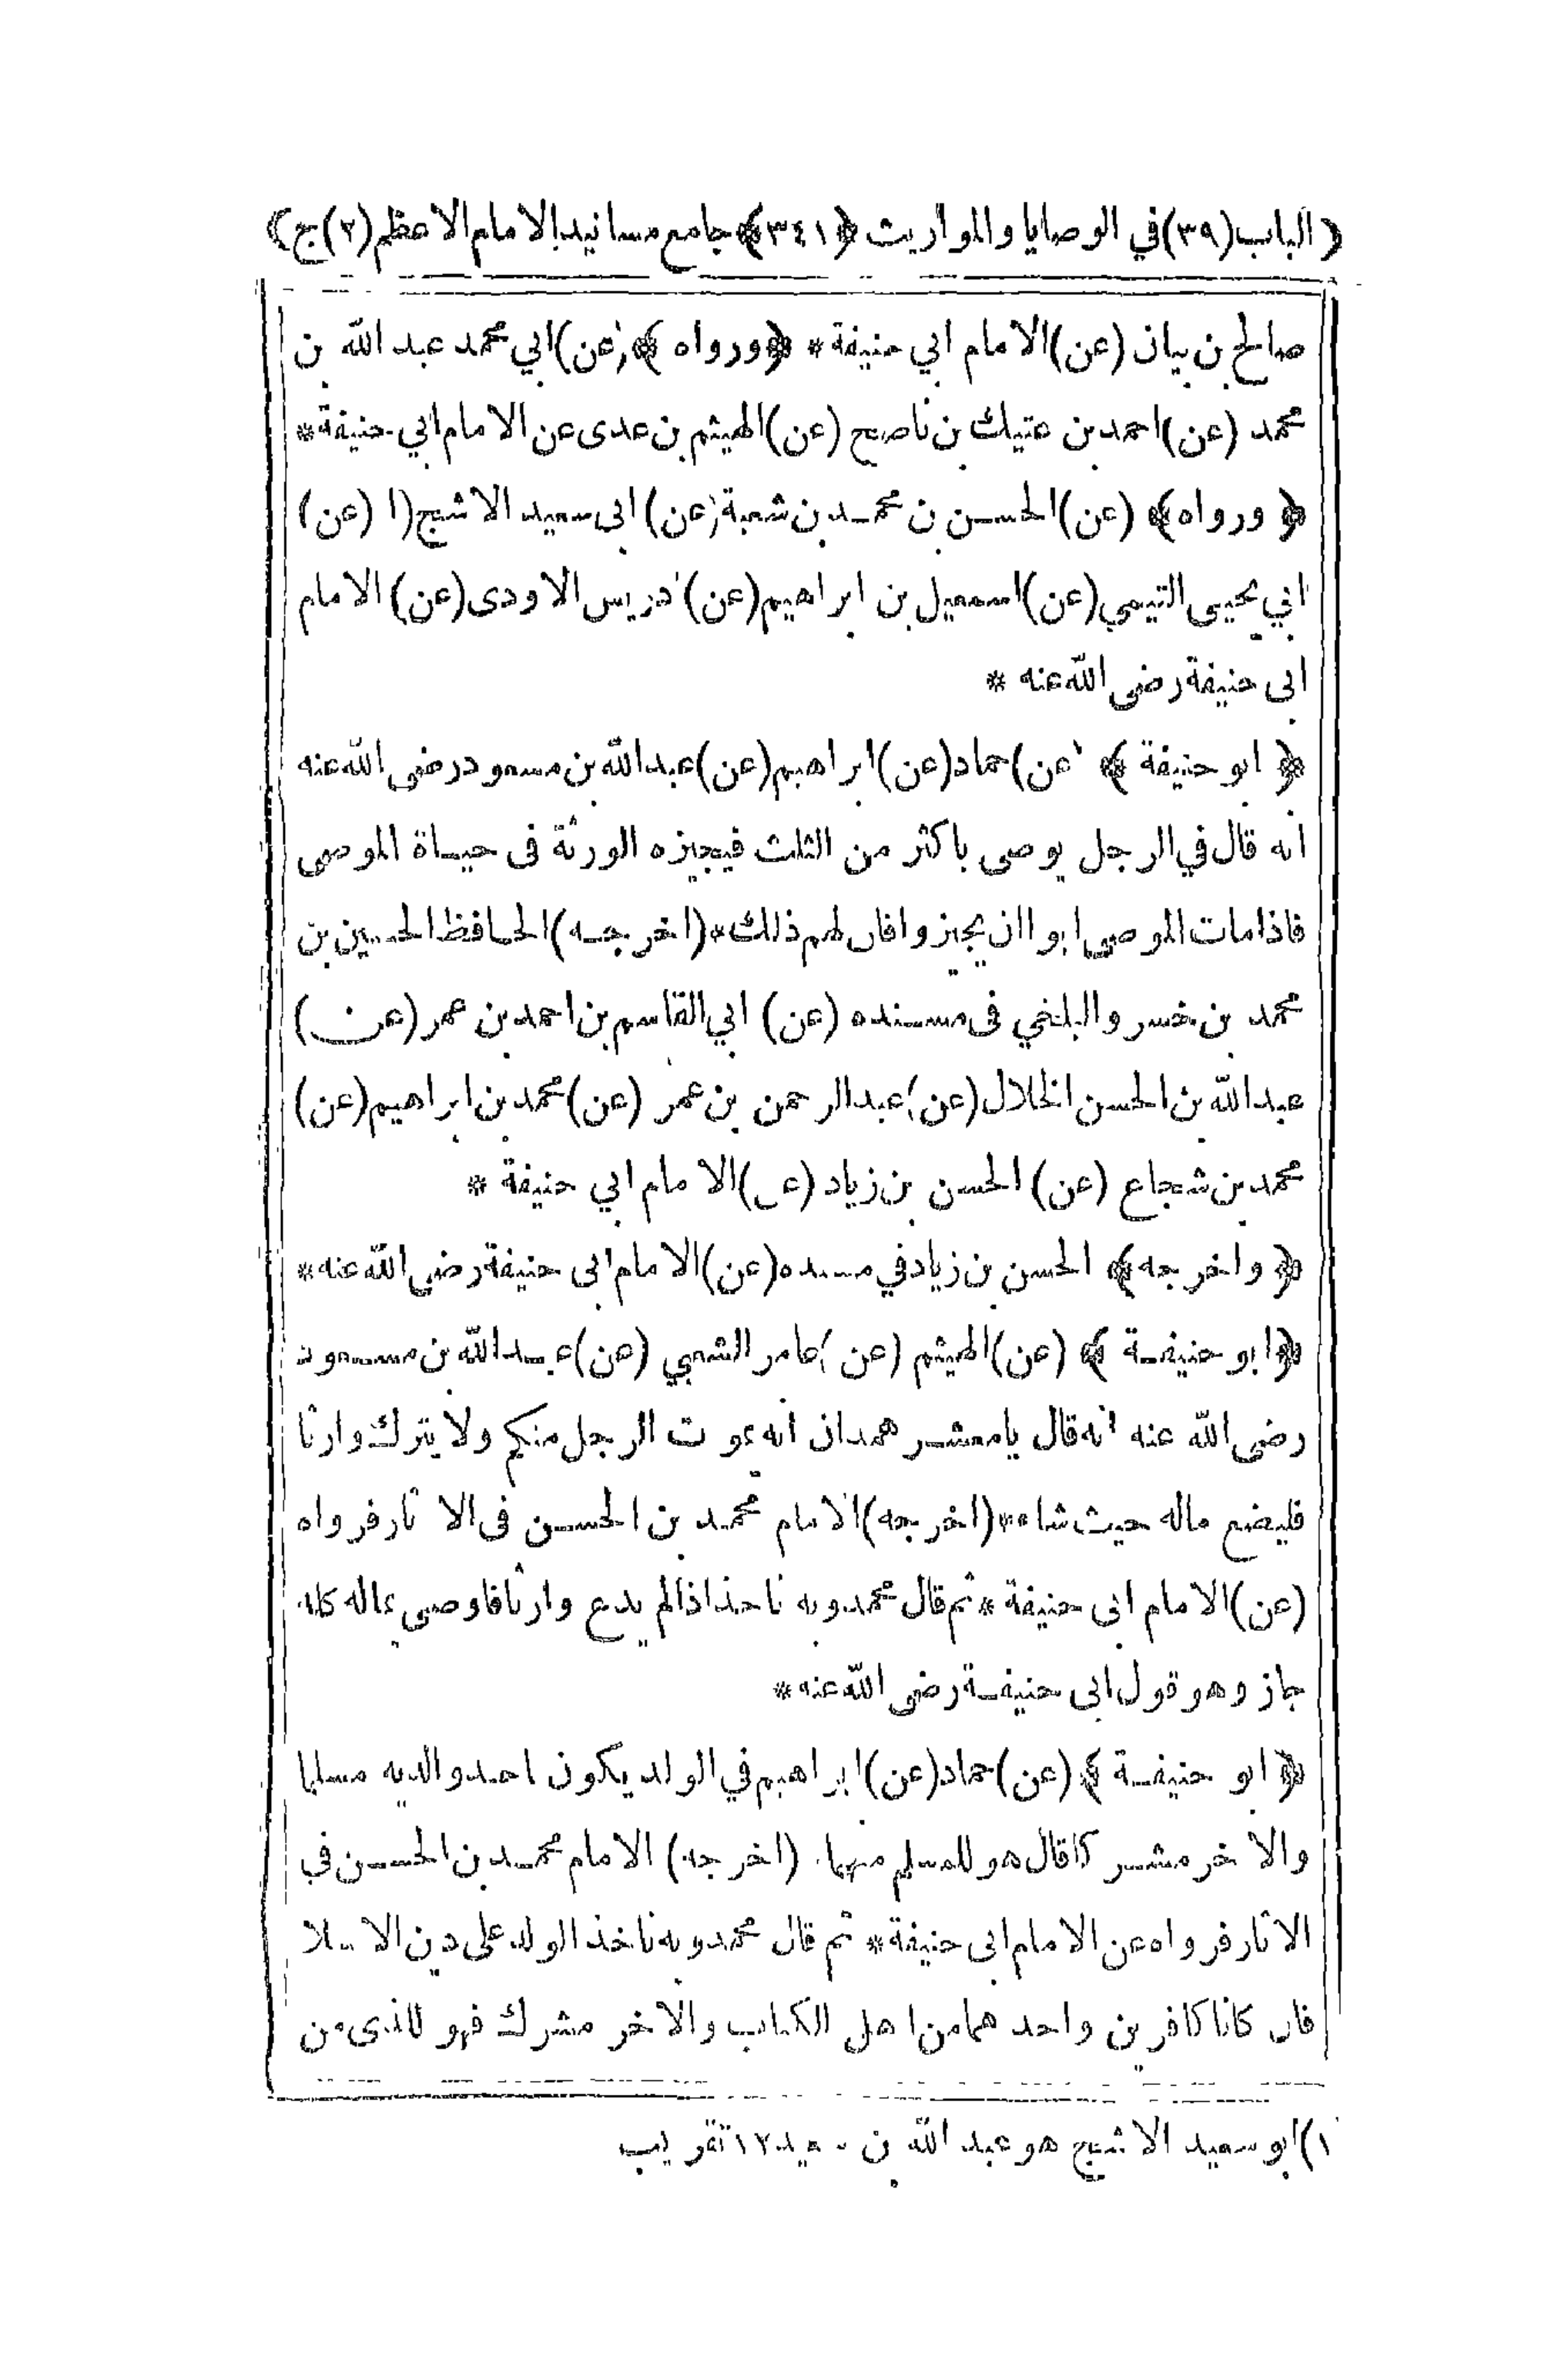 ﴿ الباب (٣٩) في الوصايا والمواريث ﴿٣٤١﴾ جامع مسانيد الامام الاعظم (٢) ج ﴾
صالح بن بيان (عن) الامام ابي حنيفة * ﴿ ورواه ﴾ (عن) ابي محمد عبد الله بن
محمد (عن) احمد بن عتيك بن ناصح (عن) الهيثم بن عدى عن الامام ابي حنيفة *
﴿ ورواه ﴾ (عن) الحسن بن محمد بن شعبة (عن) ابى سعيد الاشج (١ (عن)
ابي يحيى التيمي (عن) اسمعيل بن ابراهيم (عن) ادريس الاودى (عن) الامام
ابى حنيفة رضى الله عنه *
﴿ ابو حنيفة ﴾ (عن) حماد (عن) ابراهيم (عن) عبد الله بن مسعود رضى الله عنه
انه قال في الرجل يوصى باكثر من الثلث فيجيزه الورثة فى حياة الموصى
فاذا مات الموصى ابوا ان يجيزوا فان لهم ذلك * (اخرجه) الحافظ الحسين بن
محمد بن خسرو البلخي فى مسنده (عن) ابي القاسم بن احمد بن عمر (عن)
عبد الله بن الحسن الخلال (عن) عبد الرحمن بن عمر (عن) محمد بن ابراهيم (عن)
محمد بن شجاع (عن) الحسن بن زياد (عن) الامام ابي حنيفة *
﴿ واخرجه ﴾ الحسن بن زياد في مسنده (عن) الامام ابى حنيفة رضى الله عنه *
﴿ ابو حنيفة ﴾ (عن) الهيثم (عن) عامر الشعبي (عن) عبد الله بن مسعود
رضى الله عنه انه قال يا معشر همدان انه يموت الرجل منكم ولا يترك وارثا
فليضع ماله حيث شاء * (اخرجه) الامام محمد بن الحسن فى الاثار فرواه
(عن) الامام ابى حنيفة * ثم قال محمد وبه ناخذ اذا لم يدع وارثا فاوصى بماله كله
جاز وهو قول ابى حنيفة رضى الله عنه *
﴿ ابو حنيفة ﴾ (عن) حماد (عن) ابراهيم في الولد يكون احد والديه مسلما
والاخر مشركا قال هو للمسلم منهما. (اخرجه) الامام محمد بن الحسن في
الاثار فرواه عن الامام ابى حنيفة * ثم قال محمد وبه ناخذ الولد على دين الاسلا
فان كانا كافرين واحدهما من اهل الكتاب والاخر مشرك فهو للذى من
١) ابو سعيد الاشج هو عبد الله بن سعيد ١٢ تقريب